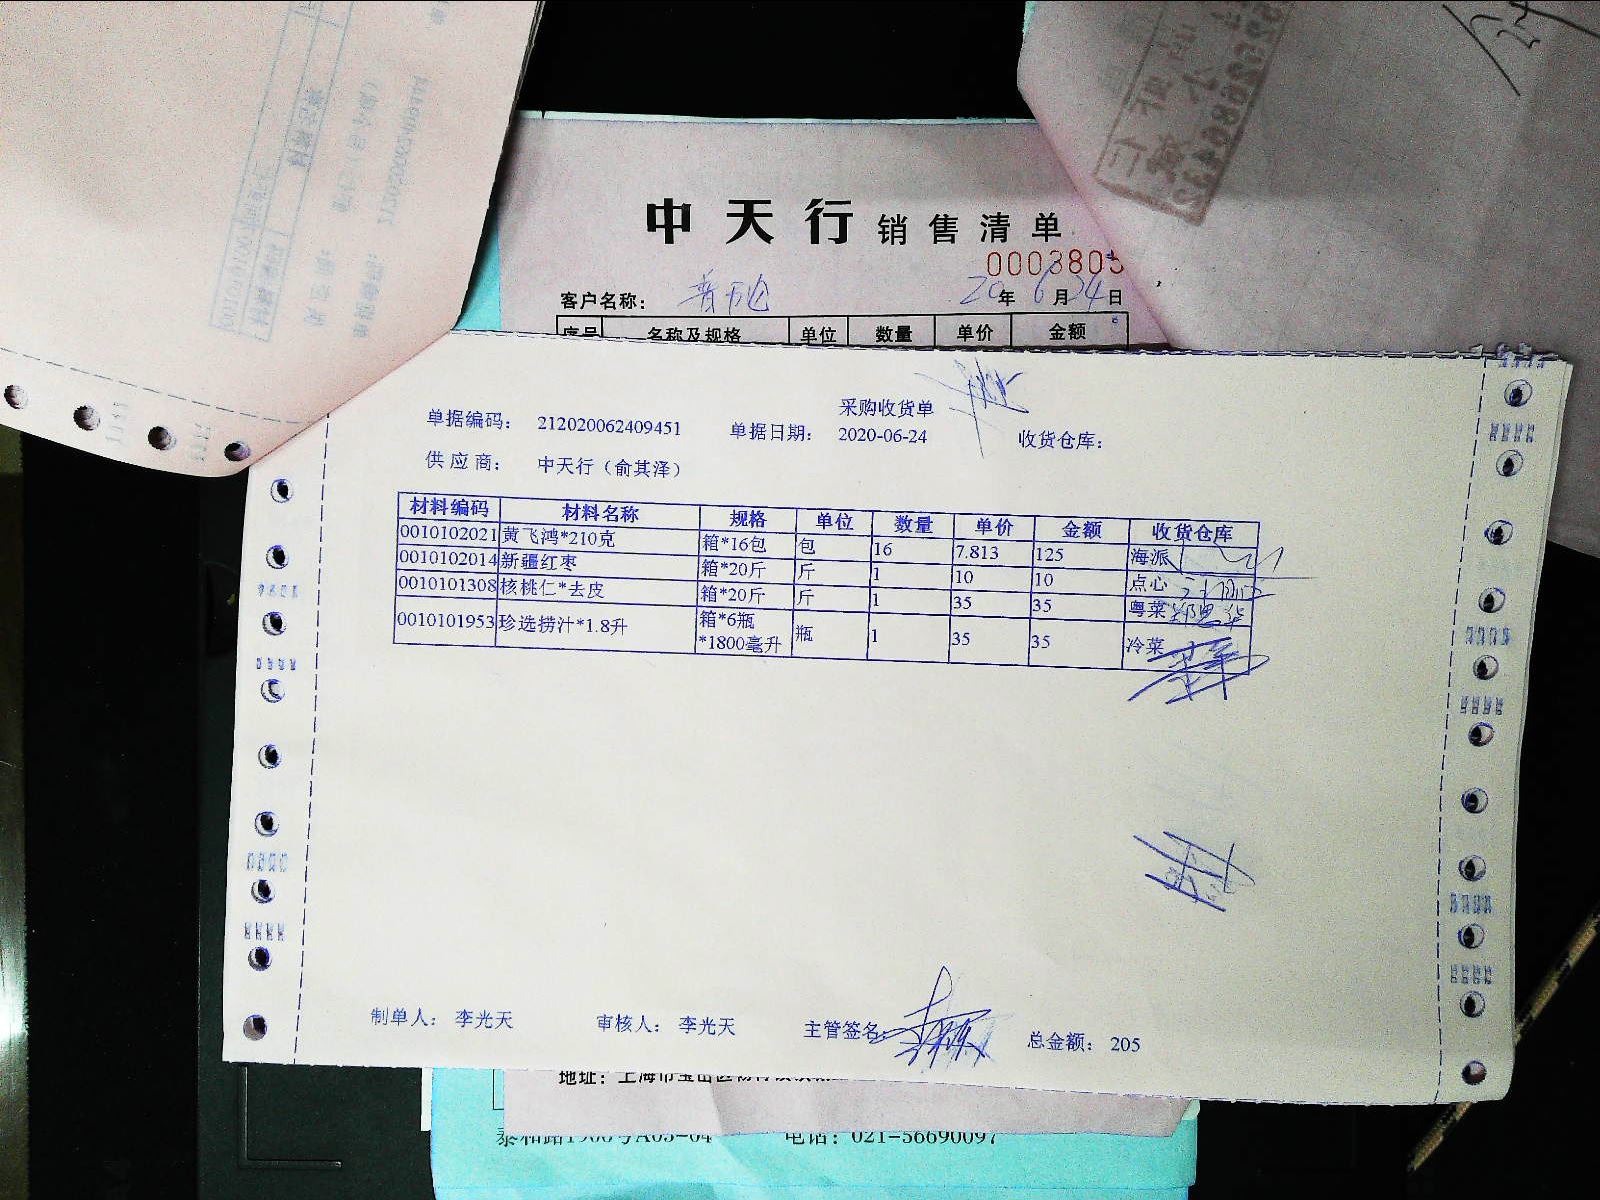 中天行 销售清单
0003805
客户名称： 20年6月24日
序号 名称及规格 单位 数量 单价 金额
采购收货单
单据编码： 212020062409451 单据日期： 2020-06-24 收货仓库：
供应商： 中天行（俞其泽）
材料编码 材料名称 规格 单位 数量 单价 金额 收货仓库
0010102021 黄飞鸿*210克 箱*16包 包 16 7.813 125 海派
0010102014 新疆红枣 箱*20斤 斤 1 10 10 点心
0010101308 核桃仁*去皮 箱*20斤 斤 1 35 35 粤菜
0010101953 珍选捞汁*1.8升 箱*6瓶*1800毫升 瓶 1 35 35 冷菜
制单人： 李光天 审核人： 李光天 主管签名： 总金额： 205
地址：上海市宝山区
泰和路1900号A03-04 电话：021-56690097